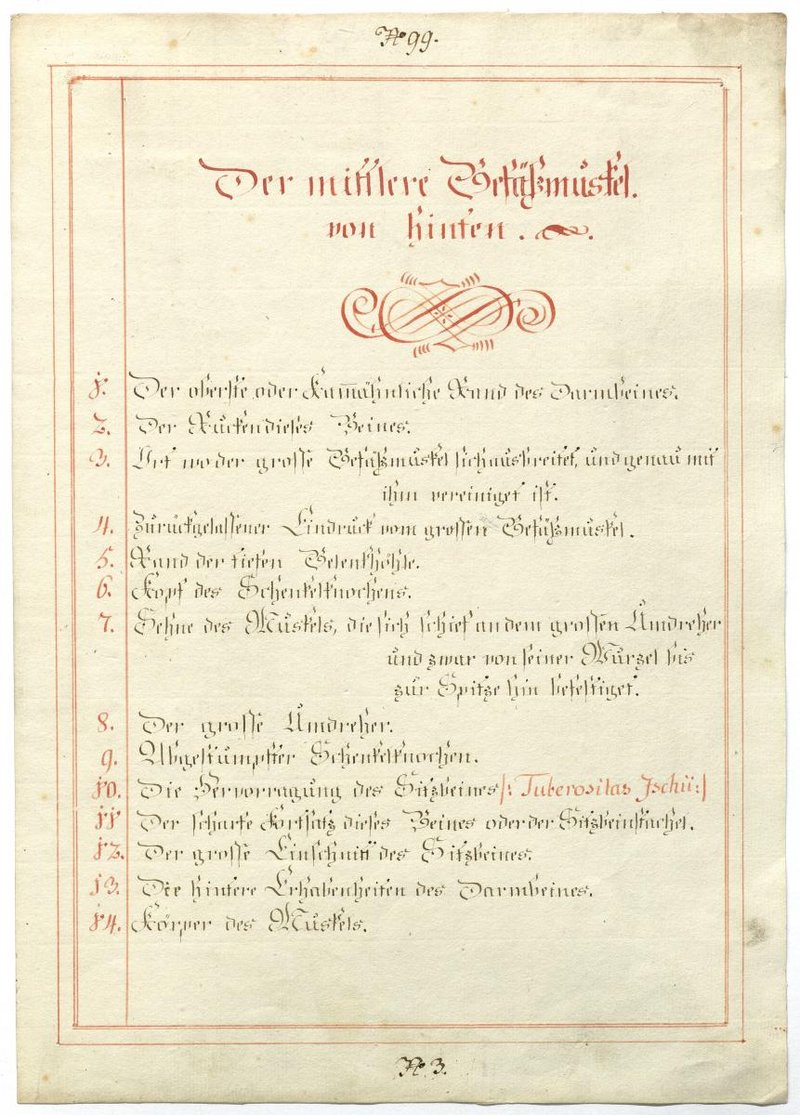 No 99.
Der mittlere Gesäßmuskel.
von hinten.
1. Der oberste oder Kam̅ähnliche Rand des Darmbeines.
2. Der Rücken dieses Beines.
3. Ort wo der grosse Gesäßmuskel sich ausbreitet, und genau mit
ihm vereiniget ist.
4. Zurückgelassener Eindruck vom grossen Gesäßmuskel.
5. Rand der tiefen Gelenkhöhle.
6. Kopf des Schenkelknochens.
7. Sehne des Muskels, die sich schief an dem grossen Umdreher
und zwar von seiner Wurzel bis
zur Spitze hin befestiget.
8. Der grosse Umdreher.
9. Abgestumpfter Schenkelknochen.
10. Die Hervorragung des Sitzbeines /: Tuberositas Jschii :/
11. Der scharfe Fortsatz dieses Beines oder der Sitzbeinstachel.
12. Der grosse Einschnitt des Sitzbeines.
13. Die hintere Erhabenheiten des Darmbeines.
14. Körper des Muskels.
No 3.